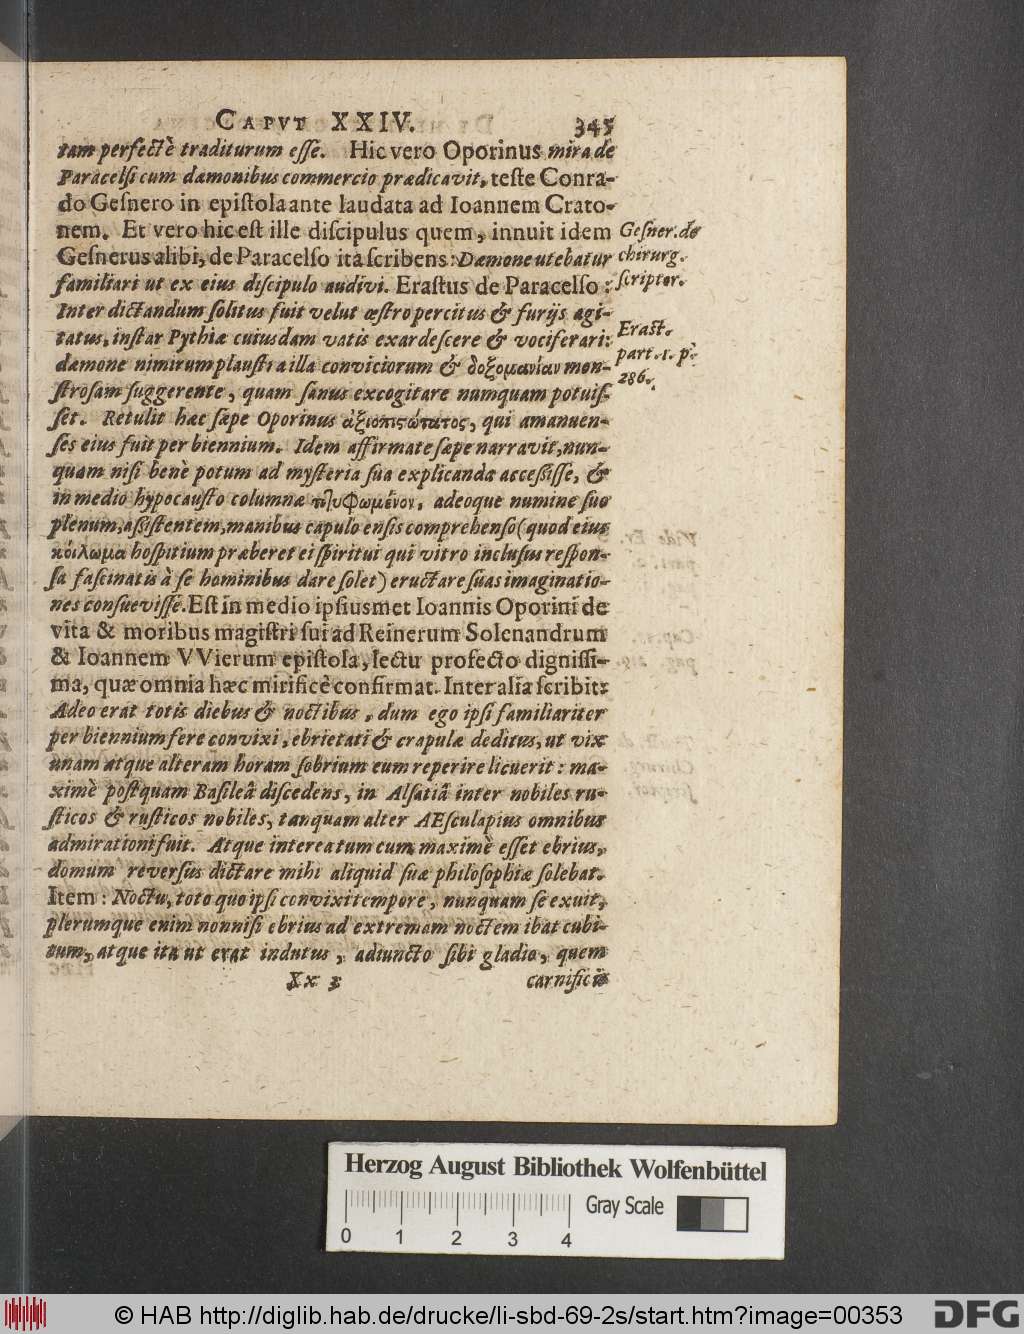 CAPVT XXIV. 345
tam perfectè traditurum esse. Hic vero Oporinus mira de
Paracelsi cum dæmonibus commercio prædicavit, teste Conra-
do Gesnero in epistola ante laudata ad Ioannem Crato-
nem. Et vero hic est ille discipulus quem, innuit idem
Gesnerus alibi, de Paracelso ita scribens: Dæmone utebatur
familiari ut ex eius discipulo audivi. Erastus de Paracelso:
Inter dictandum solitus fuit velut æstro percitus & furijs agi-
tatus, instar Pythiæ cuiusdam vatis exardescere & vociferari:
dæmone nimirum plaustra illa conviciorum & δοξομανίαν mon-
strosam suggerente, quam sanus excogitare numquam potuis-
set. Retulit hæc sæpe Oporinus ἀξιοπιστώτατος, qui amanuen-
ses eius fuit per biennium. Idem affirmate sæpe narravit, nun-
quam nisi benè potum ad mysteria sua explicanda accessisse, &
in medio hypocausto columnæ τετυφωμένον, adeoque numine suo
plenum, assistentem, manibus capulo ensis comprehenso (quod eius
κοίλωμα hospitium præberet ei spiritui qui vitro inclusus respon-
sa fascinatis à se hominibus dare solet) eructare suas imaginatio-
nes consuevisse. Est in medio ipsiusmet Ioannis Oporini de
vita & moribus magistri sui ad Reinerum Solenandrum
& Ioannem VVierum epistola, lectu profecto dignissi-
ma, quæ omnia hæc mirificè confirmat. Inter alia scribit:
Adeo erat totis diebus & noctibus, dum ego ipsi familiariter
per biennium fere convixi, ebrietati & crapulæ deditus, ut vix
unam atque alteram horam sobrium eum reperire licuerit: ma-
ximè postquam Basileâ discedens, in Alsatiâ inter nobiles ru-
sticos & rusticos nobiles, tanquam alter AEsculapius omnibus
admirationi fuit. Atque interea tum cum maximè esset ebrius,
domum reversus dictare mihi aliquid suæ philosophiæ solebat.
Item: Noctu, toto quo ipsi convixi tempore, nunquam se exuit,
plerumque enim nonnisi ebrius ad extremam noctem ibat cubi-
tum, atque ita ut erat indutus, adiuncto sibi gladio, quem
Xx 3 carnificis
Gesner. de
chirurg.
scriptor.
Erast.
part. 1. p.
286.
Herzog August Bibliothek Wolfenbüttel
Gray Scale
0 1 2 3 4
© HAB http://diglib.hab.de/drucke/li-sbd-69-2s/start.htm?image=00353
DFG